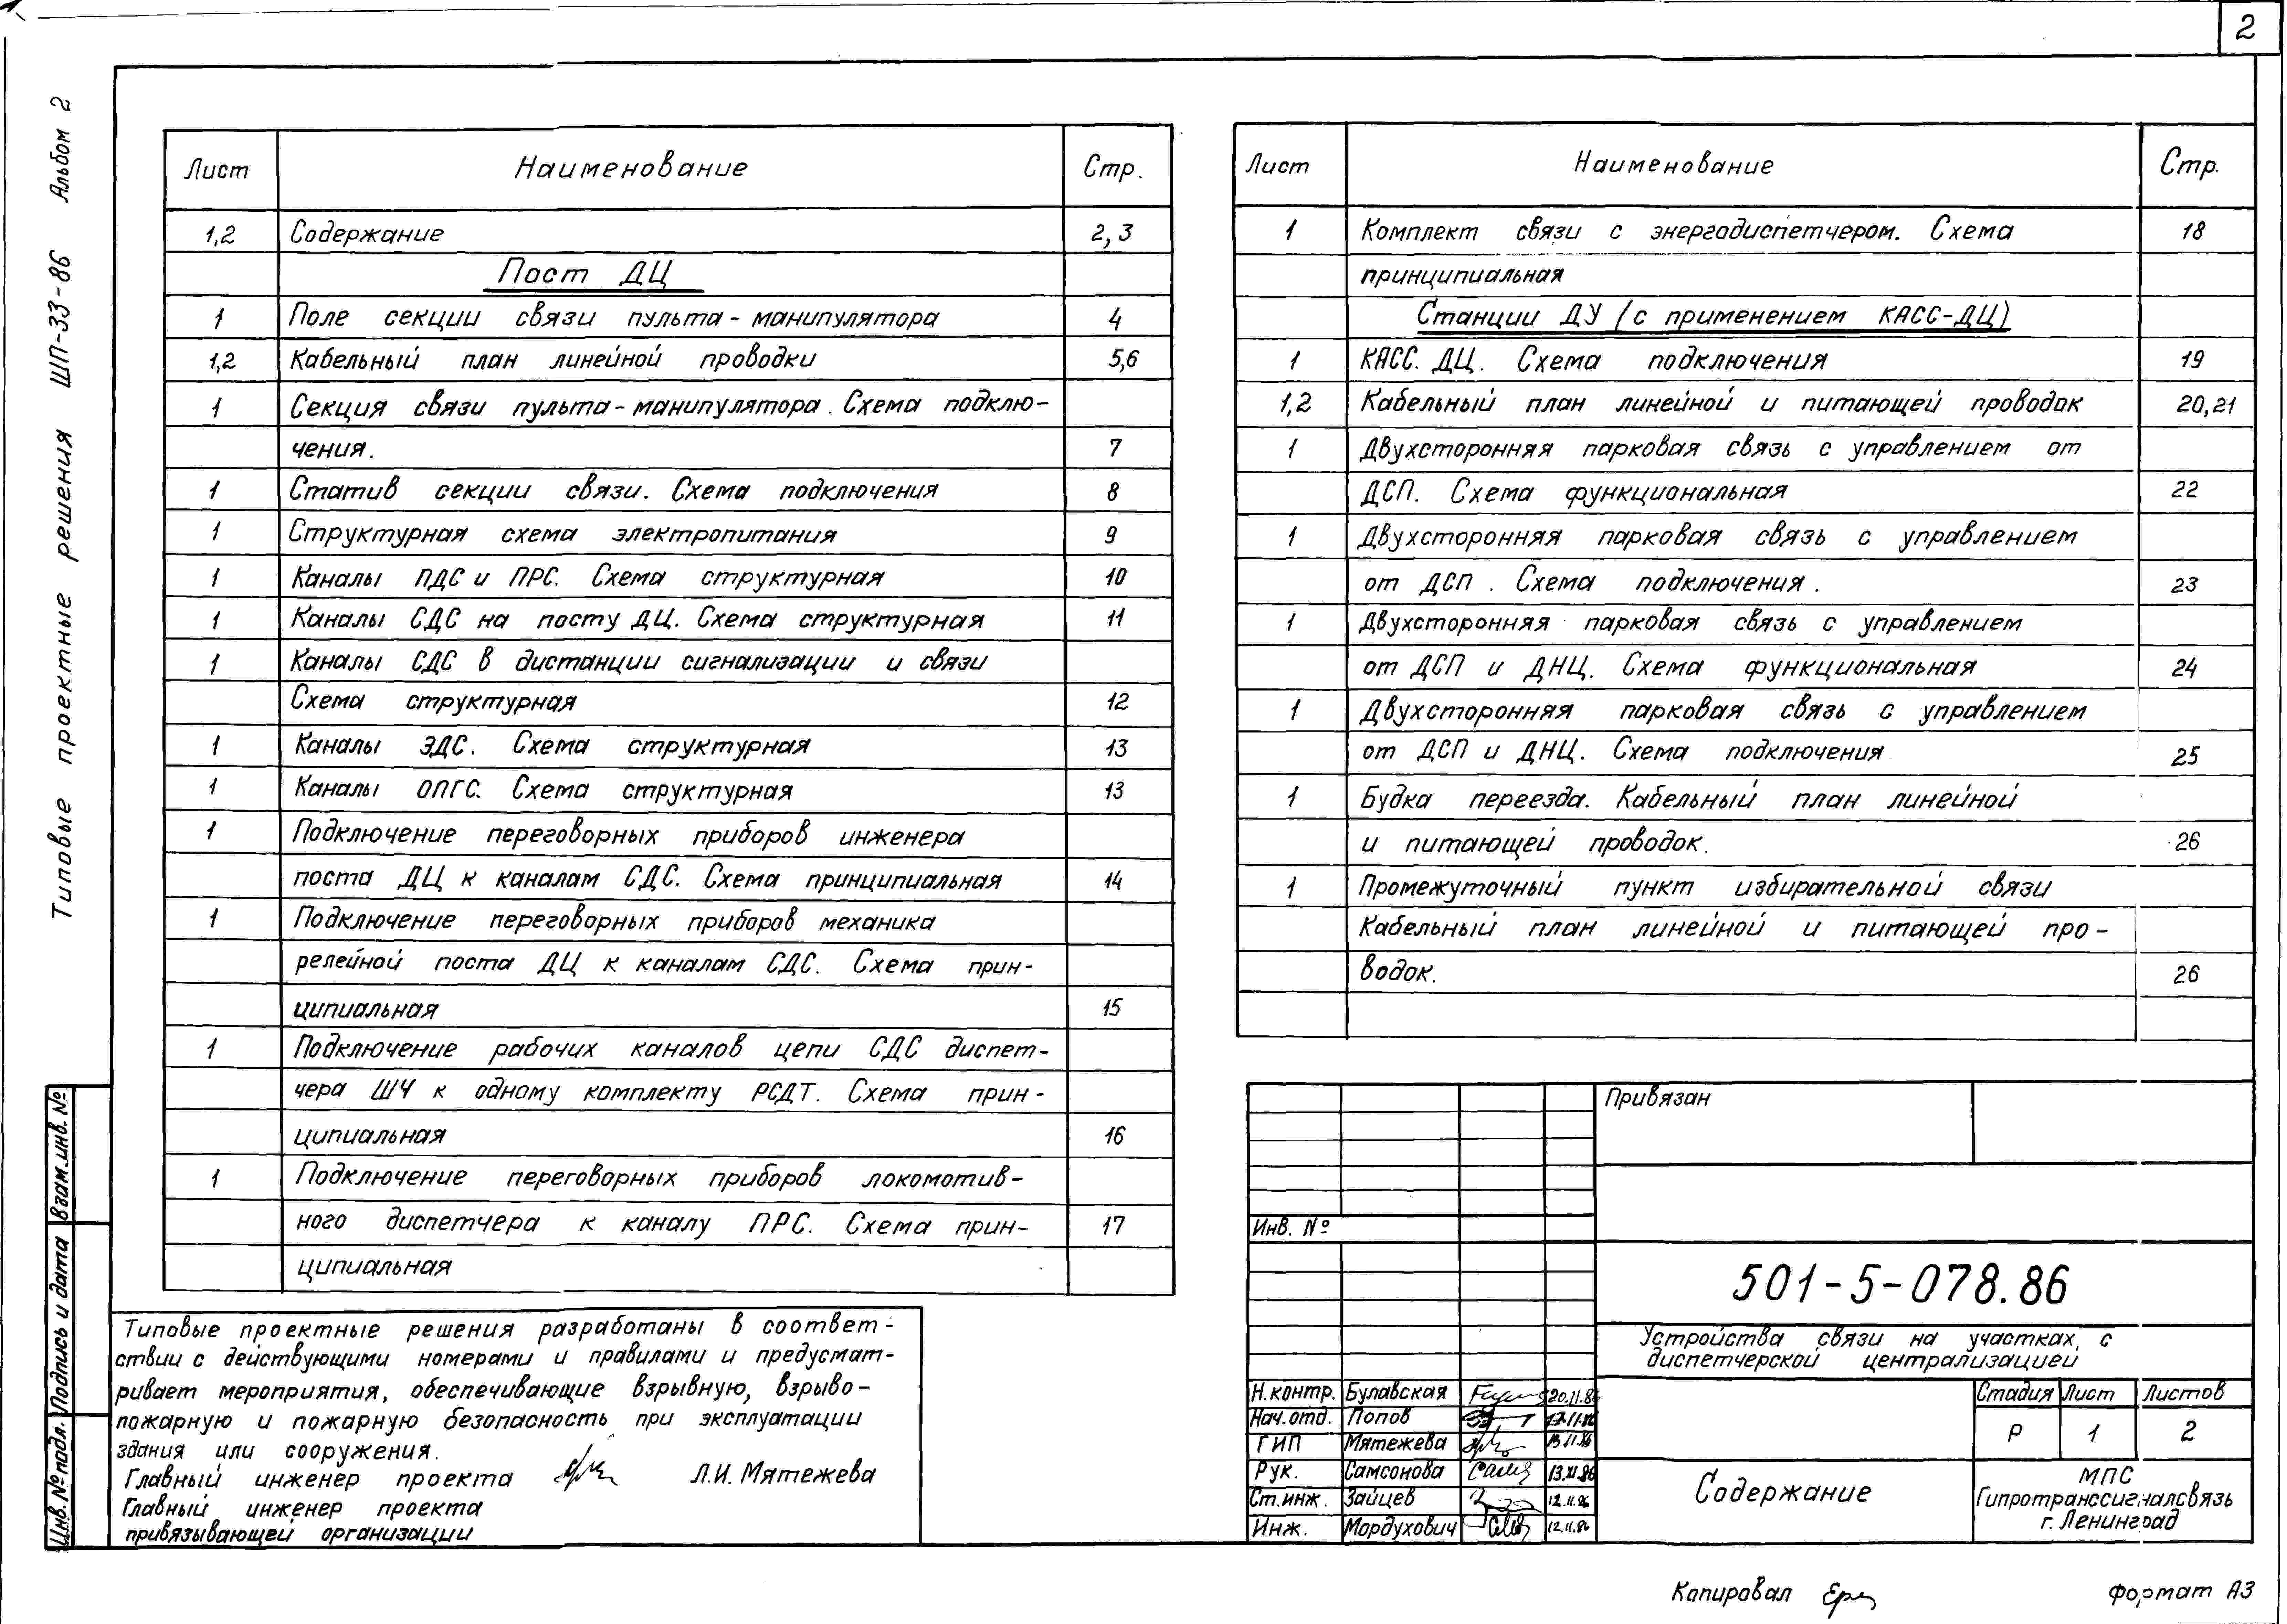 2
Типовые проектные решения ШП-33-86 Альбом 2
Лист Наименование Стр.
1,2 Содержание 2,3
Пост ДЦ
1 Поле секции связи пульта-манипулятора 4
1,2 Кабельный план линейной проводки 5,6
1 Секция связи пульта-манипулятора. Схема подклю-
чения. 7
1 Статив секции связи. Схема подключения 8
1 Структурная схема электропитания 9
1 Каналы ПДС и ПРС. Схема структурная 10
1 Каналы СДС на посту ДЦ. Схема структурная 11
1 Каналы СДС в дистанции сигнализации и связи
Схема структурная 12
1 Каналы ЭДС. Схема структурная 13
1 Каналы ОПГС. Схема структурная 13
1 Подключение переговорных приборов инженера
поста ДЦ к каналам СДС. Схема принципиальная 14
1 Подключение переговорных приборов механика
релейной поста ДЦ к каналам СДС. Схема прин-
ципиальная 15
1 Подключение рабочих каналов цепи СДС диспет-
чера ШЧ к одному комплекту РСДТ. Схема прин-
ципиальная 16
1 Подключение переговорных приборов локомотив-
ного диспетчера к каналу ПРС. Схема прин- 17
ципиальная
Лист Наименование Стр.
1 Комплект связи с энергодиспетчером. Схема 18
принципиальная
Станции ДУ (с применением КАСС-ДЦ)
1 КАСС. ДЦ. Схема подключения 19
1,2 Кабельный план линейной и питающей проводок 20,21
1 Двухсторонняя парковая связь с управлением от
ДСП. Схема функциональная 22
1 Двухсторонняя парковая связь с управлением
от ДСП. Схема подключения. 23
1 Двухсторонняя парковая связь с управлением
от ДСП и ДНЦ. Схема функциональная 24
1 Двухсторонняя парковая связь с управлением
от ДСП и ДНЦ. Схема подключения 25
1 Будка переезда. Кабельный план линейной
и питающей проводок. 26
1 Промежуточный пункт избирательной связи
Кабельный план линейной и питающей про-
водок. 26
Типовые проектные решения разработаны в соответ-
ствии с действующими номерами и правилами и предусмат-
ривает мероприятия, обеспечивающие взрывную, взрыво-
пожарную и пожарную безопасность при эксплуатации
здания или сооружения.
Главный инженер проекта Л.И. Мятежева
Главный инженер проекта
привязывающей организации
Инв. № подл. Подпись и дата Взам.инв. №
Привязан
Инв. №
501-5-078.86
Устройства связи на участках, с
диспетчерской централизацией
Н.контр. Булавская 20.11.86
Нач.отд. Попов 17.11.86
ГИП Мятежева 13.11.86
Рук. Самсонова 13.XI.86
Ст.инж. Зайцев 12.11.86
Инж. Мордухович 12.11.86
Стадия Лист Листов
Р 1 2
Содержание
МПС
Гипротранссигналсвязь
г. Ленинград
Копировал
Формат А3